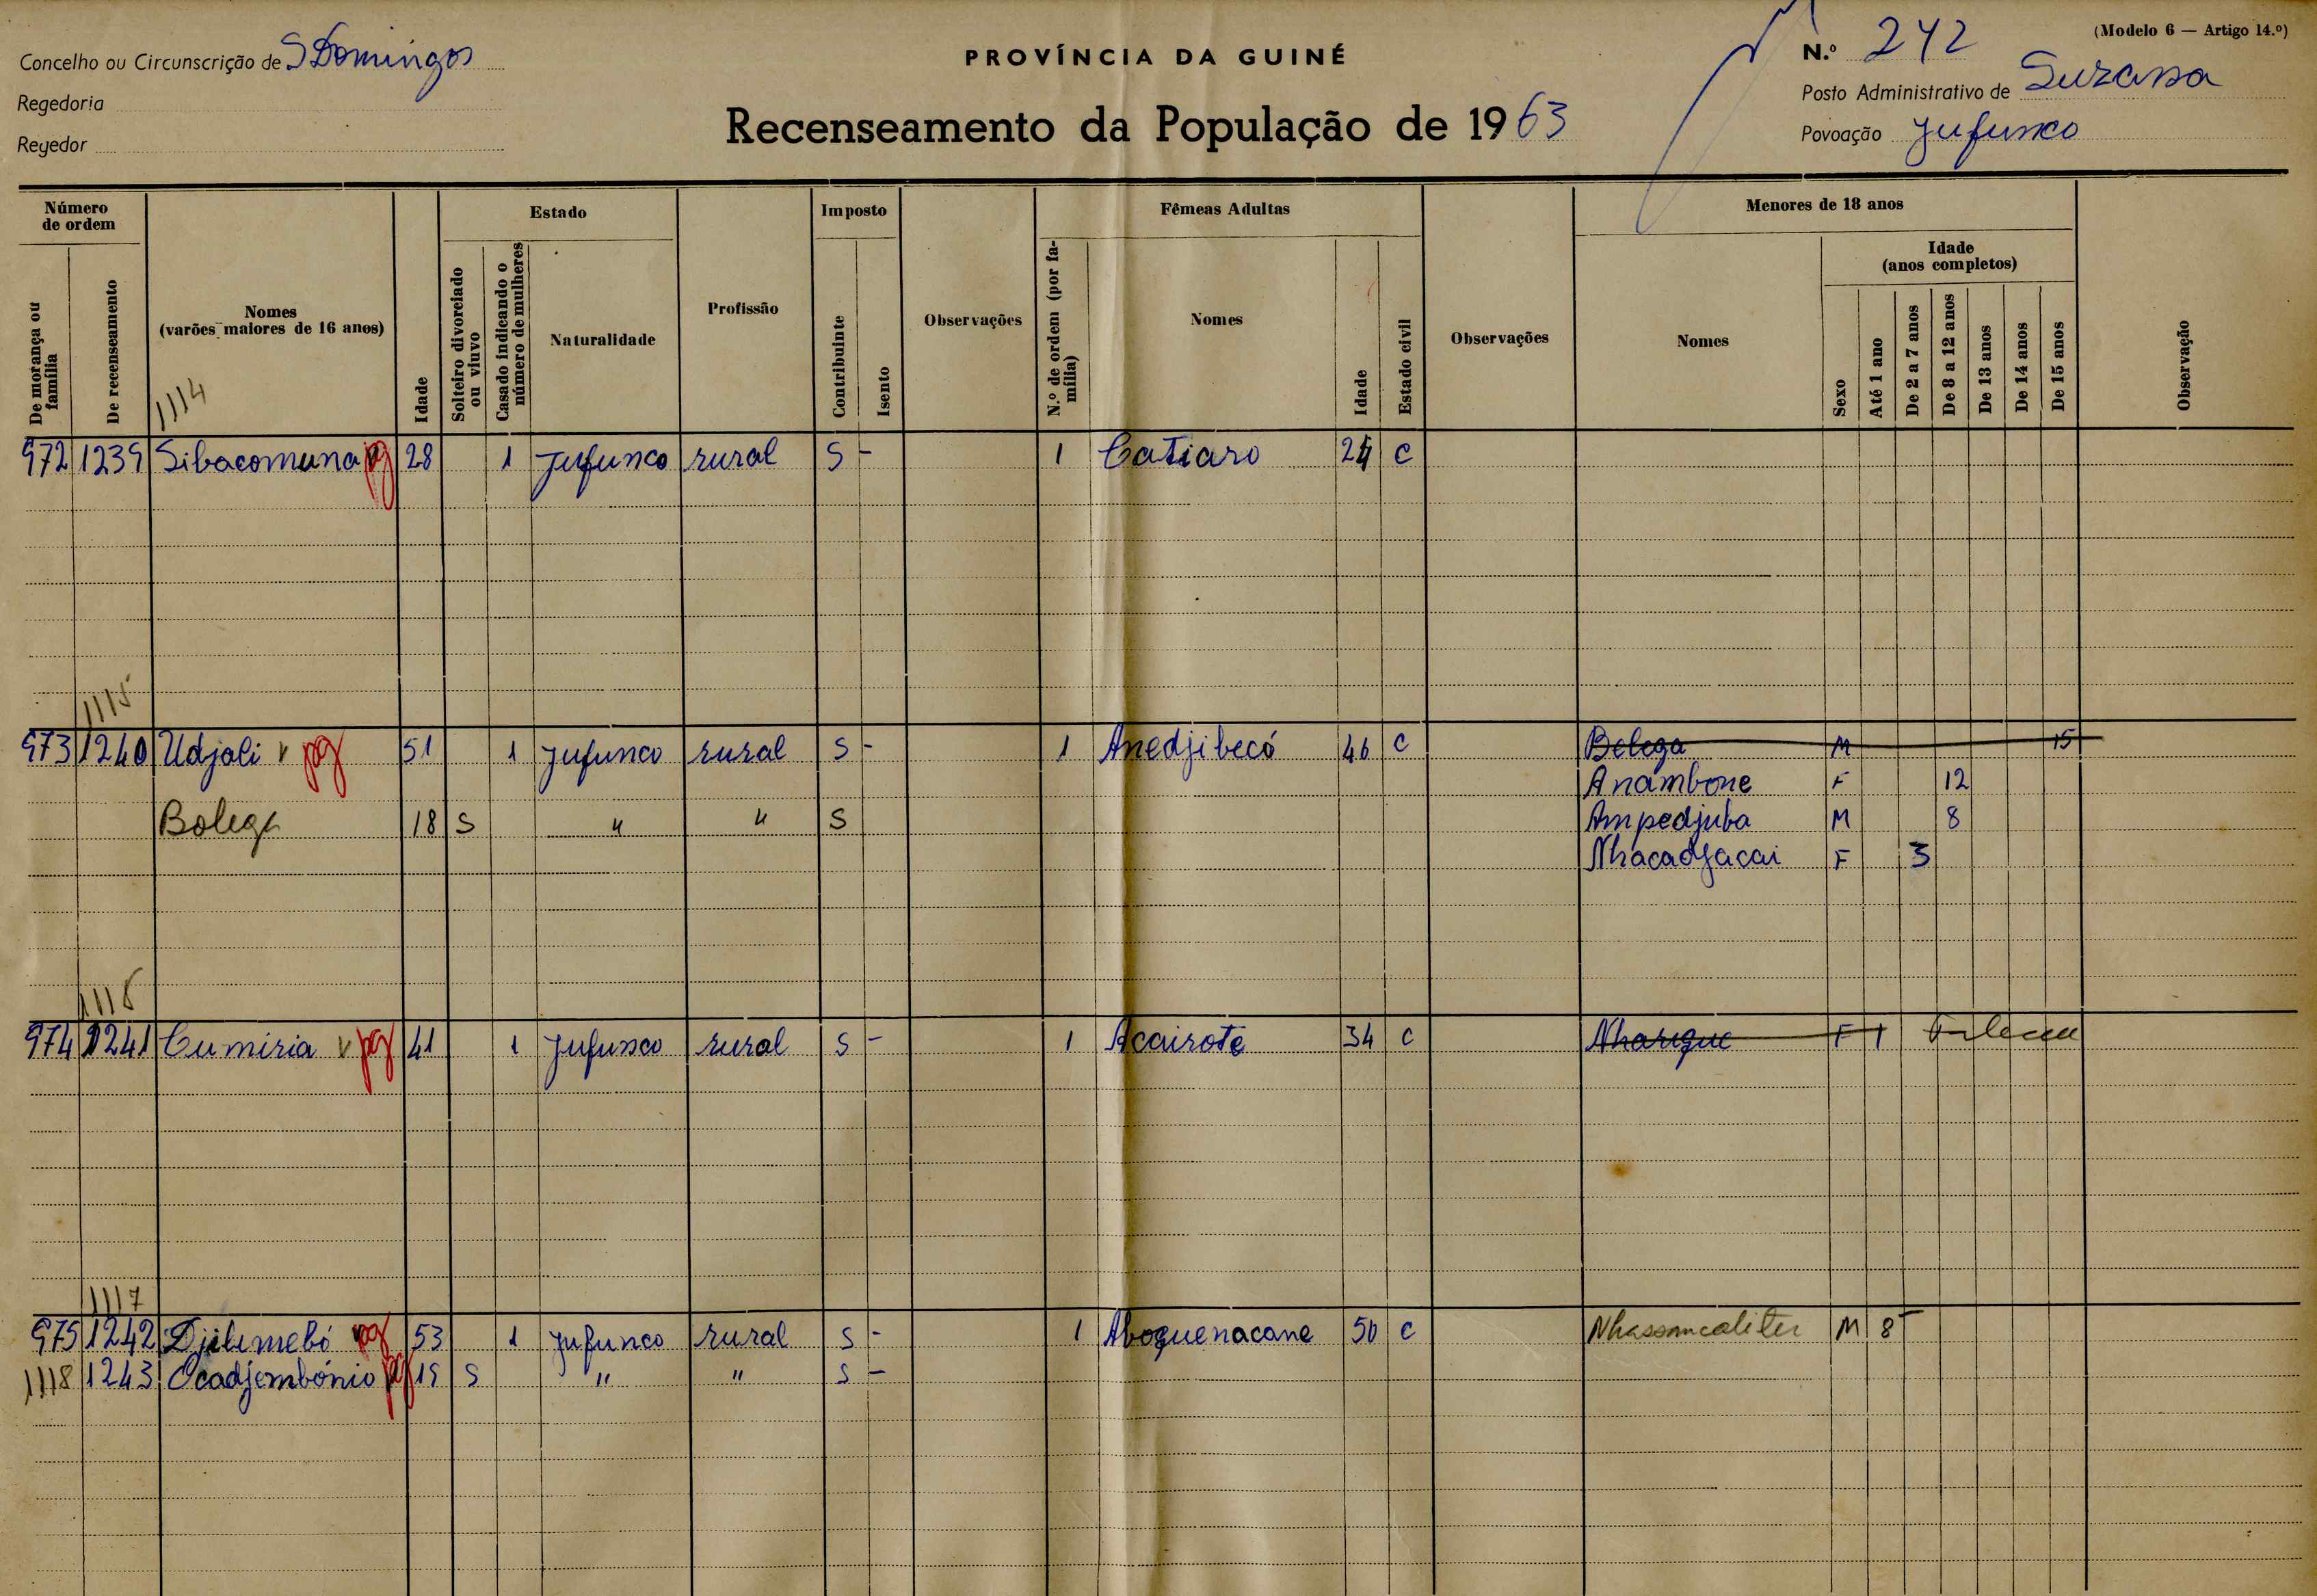 (Modelo 6 — Artigo 14.º)
Concelho ou Circunscrição de S Domingos
PROVÍNCIA DA GUINÉ
N.º 242
Regedoria
Posto Administrativo de Suzana
Recenseamento da População de 1963
Regedor
Povoação Jufunco
Número de ordem
Estado
Imposto
Fêmeas Adultas
Menores de 18 anos
Idade (anos completos)
De morança ou família
De recenseamento
Nomes (varões maiores de 16 anos)
Idade
Solteiro divorciado ou viuvo
Casado indicando o número de mulheres
Naturalidade
Profissão
Contribuinte
Isento
Observações
N.º de ordem (por família)
Nomes
Idade
Estado civil
Observações
Nomes
Sexo
Até 1 ano
De 2 a 7 anos
De 8 a 12 anos
De 13 anos
De 14 anos
De 15 anos
Observação
1114
972 1239 Sibacomuna pg 28 1 Jufunco rural S - 1 Catiaro 24 C
1115
973 1240 Udjali v pg 51 1 Jufunco rural S - 1 Anedjibecó 46 C Bolega M 15
Anambone F 12
Bolega 18 S " " S Ampedjuba M 8
Nhacadjacai F 3
1116
974 1241 Cumiria v pg 41 1 Jufunco rural S - 1 Acairote 34 C Nharigue F 1
1117
975 1242 Djilimebó pg 53 1 Jufunco rural S - 1 Aboquenacane 50 C Nhassancaliter M 8
1118 1243 Ocadjembónio pg 19 S " " S -